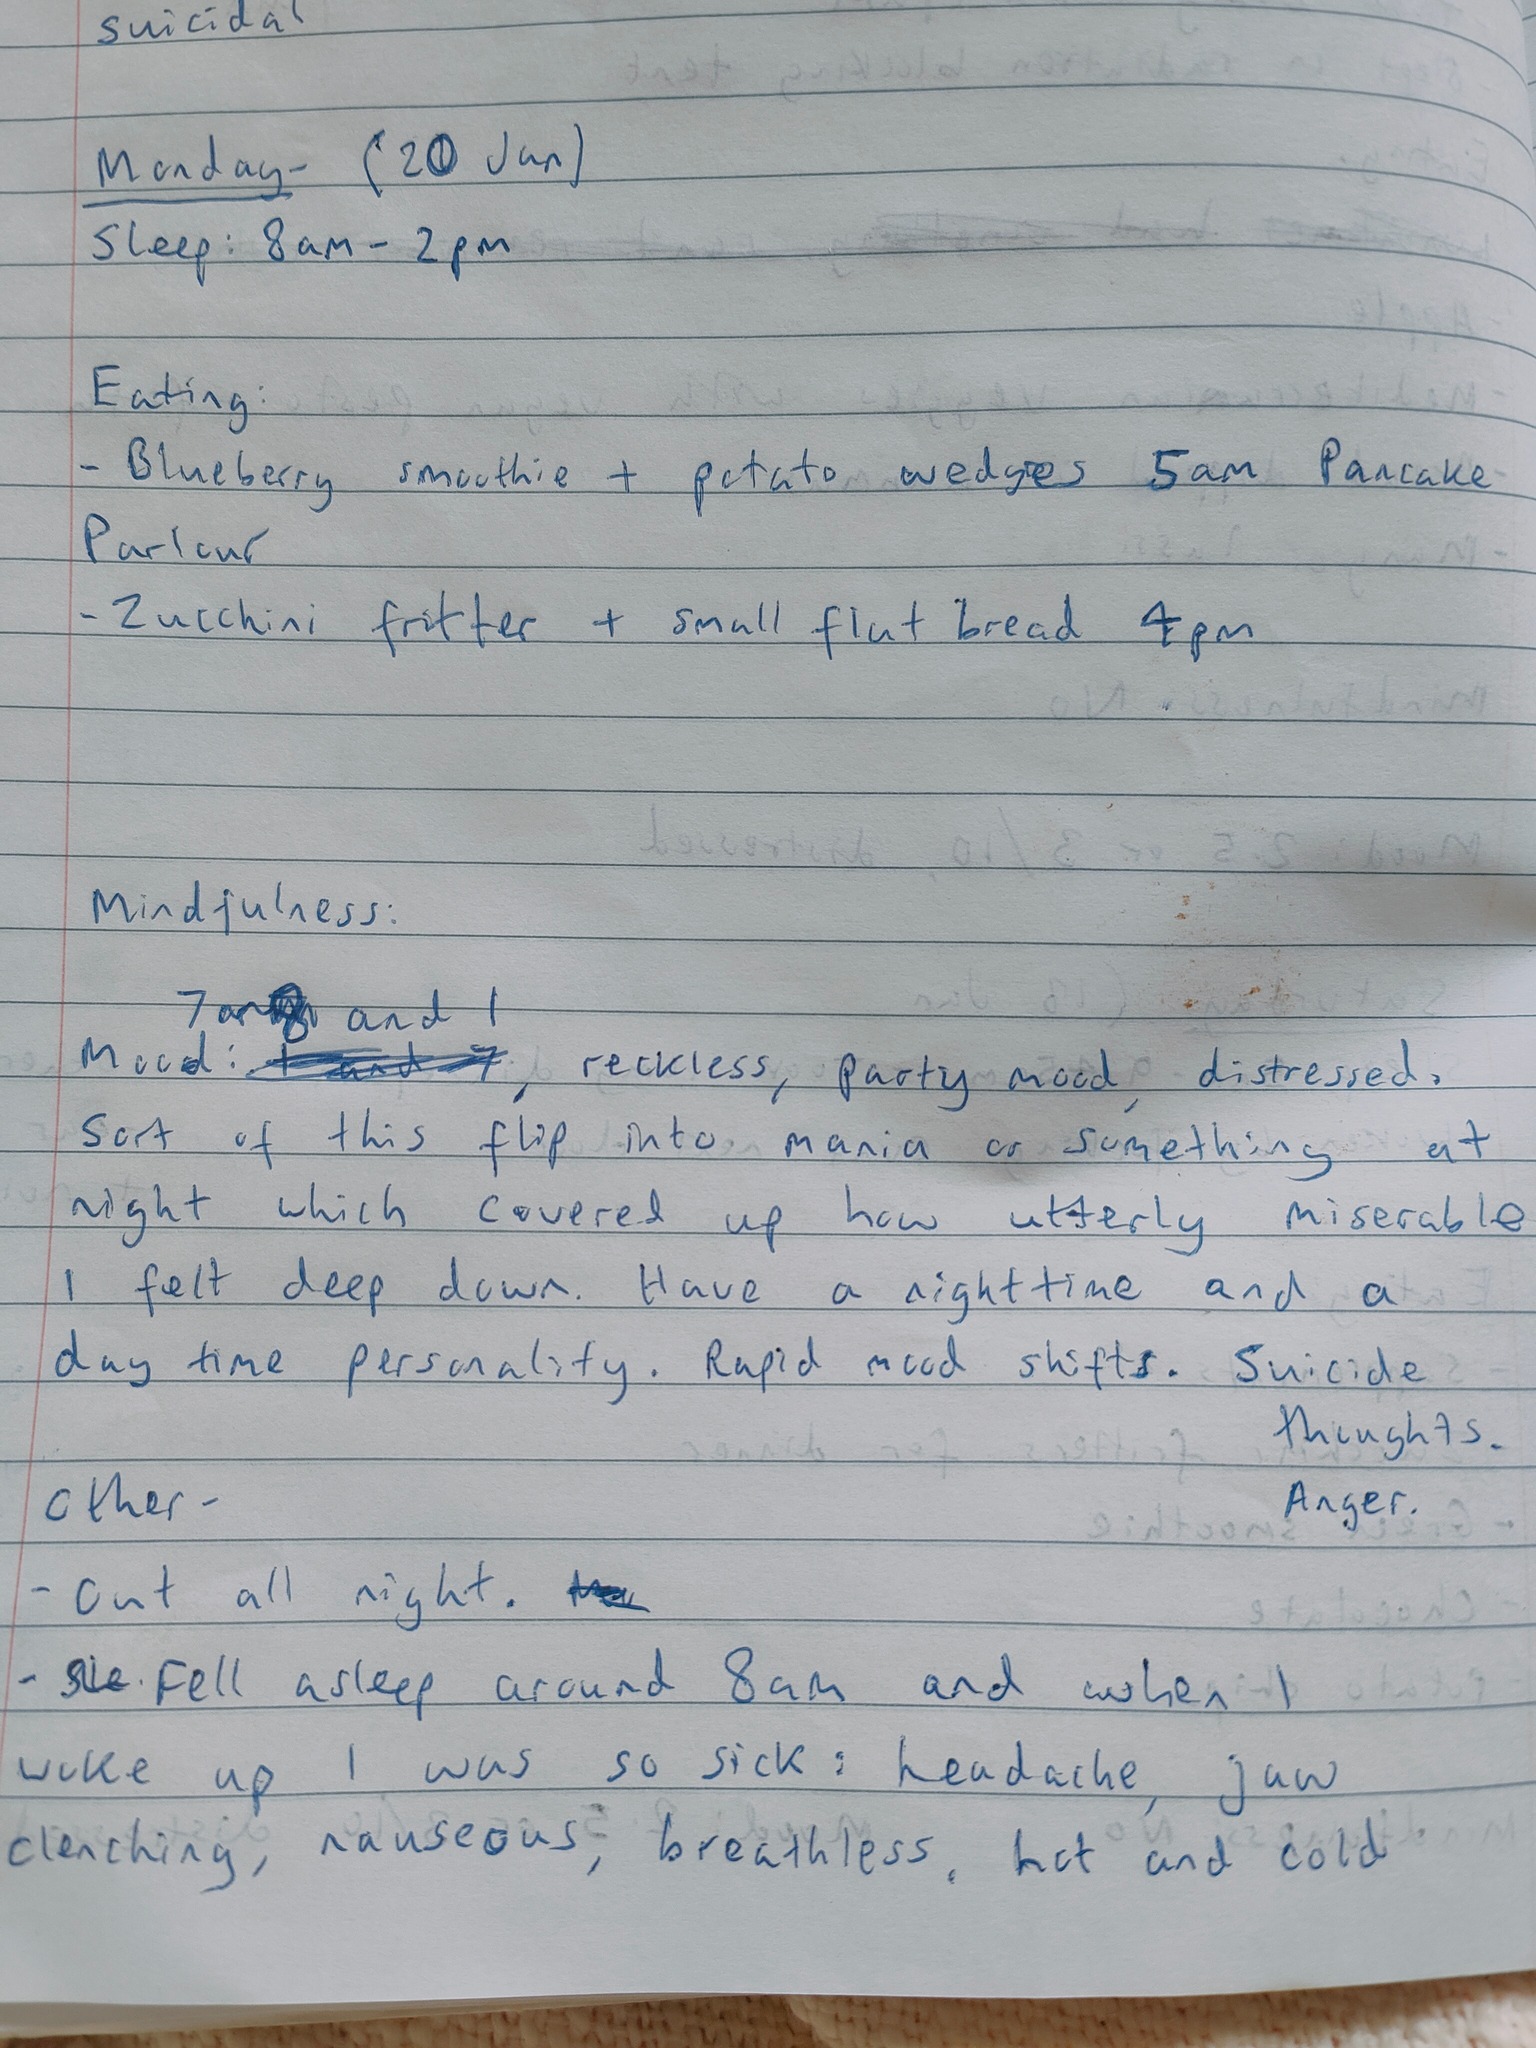 suicidal
Monday- (20 Jan)
Sleep: 8am - 2pm
Eating:
- Blueberry smoothie + potato wedges 5am Pancake
Parlour
- Zucchini fritter + small flat bread 4pm
Mindfulness:
7 and 1
Mood: 1 and 7, reckless, party mood, distressed.
Sort of this flip into mania or something at
night which covered up how utterly miserable
I felt deep down. Have a nighttime and a
day time personality. Rapid mood shifts. Suicide
thoughts.
Anger.
Other -
- Out all night.
- Sle. Fell asleep around 8am and when I
woke up I was so sick: headache, jaw
clenching, nauseous, breathless, hot and cold